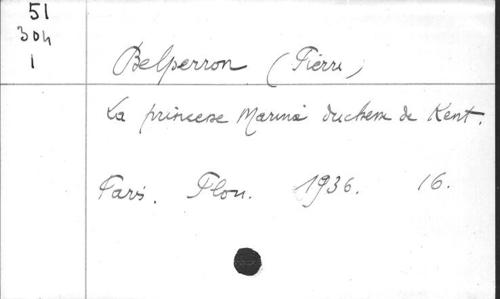 51
304
1
Belperron (Pierre)
La princesse Marina duchesse de Kent.
Paris. Plon. 1936. 16.